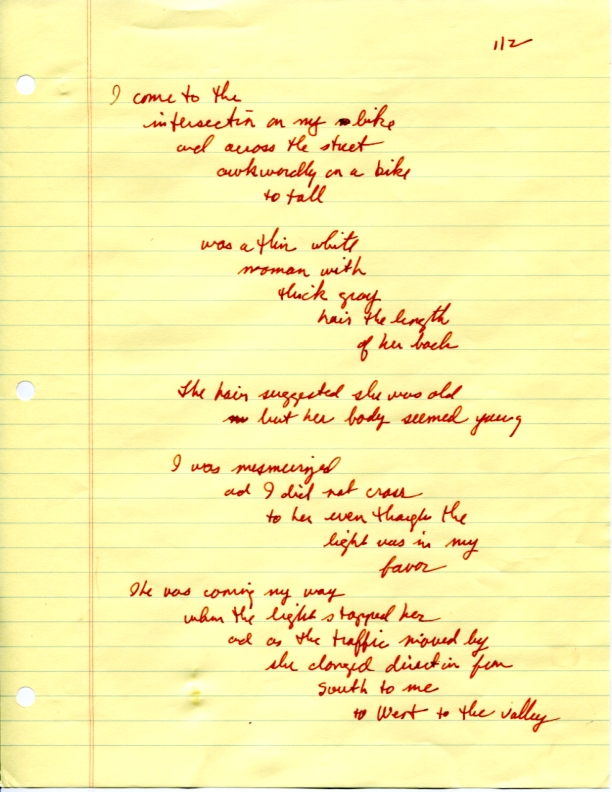 1/2
I come to the
intersection on my bike
and across the street
awkwordly on a bike
to tall
was a thin white
woman with
thick gray
hair the length
of her back
The hair suggested she was old
but her body seemed young
I was mesmerized
and I did not cross
to her even though the
light was in my
favor
She was coming my way
when the light stopped her
and as the traffic moved by
she changed direction from
South to me
to West to the valley